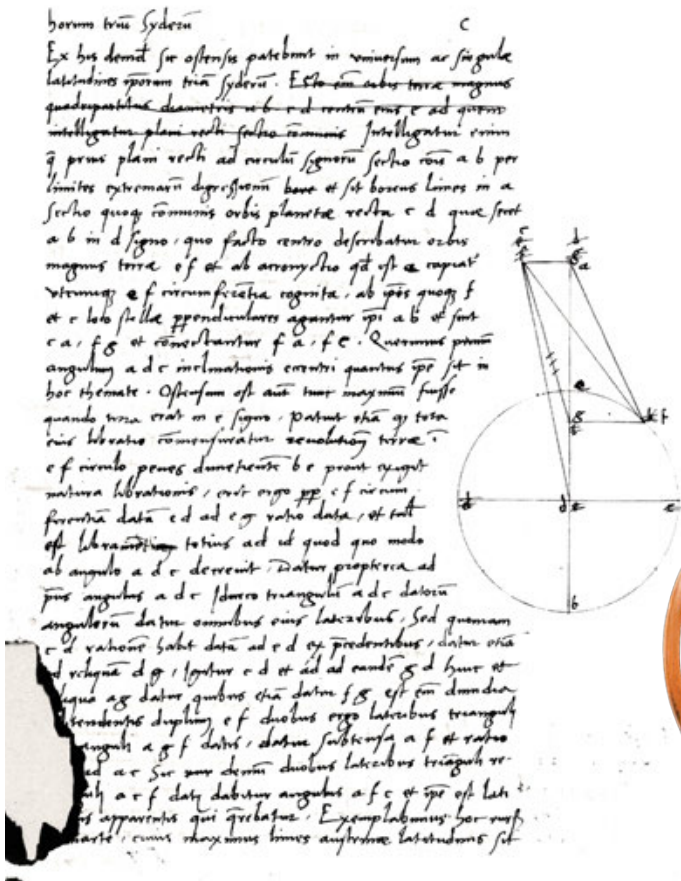 horum triū Syderū C
Ex his demū sic ostensis patebunt in universum ac singulæ
latitudines ip̄orum triū syderū . Esto em̄ orbis terræ magnus
quadripartitus diametris a b c d centrū eius e ad quem
intelligatur plani recti sectio cōmunis Intelligatur enim
q̄ prius plani recti ad circulū signorū sectio cōis a b per
limites extremarū digressionū bore et sit boreus limes in a
sectio quoq̄ cōmunis orbis planetæ recta c d quæ secet
a b in d signo , quo facto centro describatur orbis
magnus terræ e f et ab acronyctio qd̄ est e capiat᷑
utcumq̄ e f circumferētia cognita , ab ip̄is quoq̄ f
et c loco stellæ ꝑpendiculares agantur ip̄i a b et sint
c a , f g et cōnectantur f a , f c . Querimus
angulum a d c inclinationis ecentri quantus ip̄e sit in
hoc themate . Ostensum est aut̄ tunc maximū fuisse
quando terra erat in e signo . patuit etiā q̄ tota
eius libratio cōmensuratur revolutioni terræ ī
e f circulo penes dimetientē b e prout exigit
natura librationis , erit ergo ꝓp̄ e f circum
ferentiā datā e d ad e g ratio data , et talis
est libramēti totius ad id quod quo modo
ab angulo a d c decrevit , Datur propterea ad
p̄ns angulus a d c Idcirco trianguli a d c datorū
angulorū datur omnibus eius lateribus , Sed quoniam
c d rationē habet datā ad e d ex p̄cedentibus , datur etiā
d reliquā d g , Igitur c d et ad ad eandē g d hinc et
liqua a g datur quibus etiā datur f g est em̄ dimidia
tendentis duplum e f duobus ergo lateribus trianguli
anguli a g f datis , datur subtensa a f et ratio
ad a c Sic demū duobus lateribus triāguli re
uli a c f datis dabitur angulus a f c et ip̄e est lati
is apparentis qui q̄rebatur . Exemplabimus hoc rursus
marte , cuius maximus limes austrinæ latitudinis sit
c
b
a
e
g
f
d
e
b